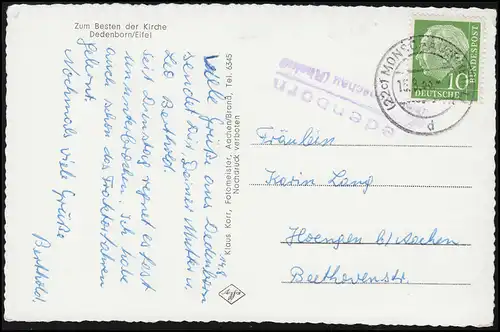 Zum Besten der Kirche
Dedenborn/Eifel
Viele Grüße aus Dedenborn
sendet Dir Deine Mutter u.
Leo Berthold.
Seit Dienstag regnet es fast
ununterbrochen. Ich habe
auch schon das Traktorfahren
gelernt.
Nochmals viele Grüße
Berthold
Klaus Kort, Fotomeister, Aachen/Brand, Tel. 6345
Nachdruck verboten
edenborn
schau (Rhein
(22c) MONSCHAU
d
DEUTSCHE
BUNDESPOST
10
Fräulein
Karin Lang
Hoengen b/Aachen
Beethovenstr.